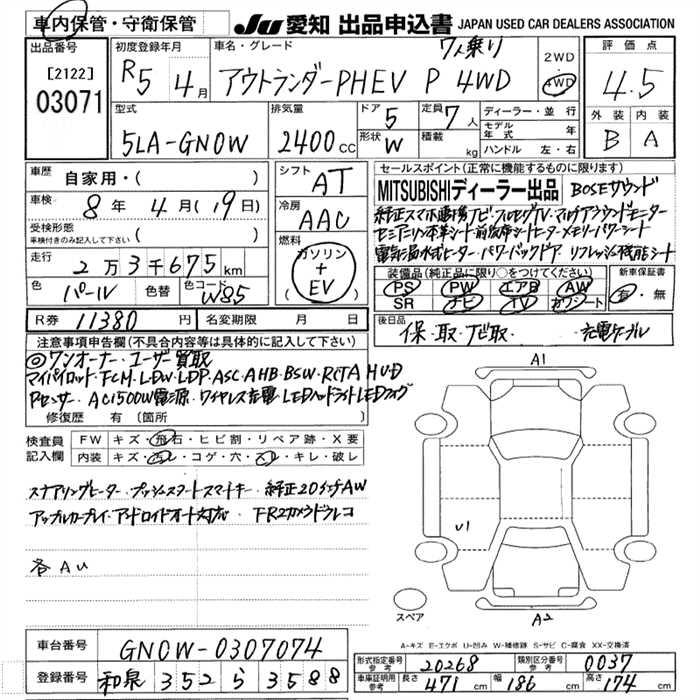 車内保管・守衛保管 JU 愛知 出品申込書 JAPAN USED CAR DEALERS ASSOCIATION
出品番号 初度登録年月 車名・グレード 7人乗り 2WD 評価点
[2122] R5 4月 アウトランダーPHEV P 4WD 4WD 4.5
03071
型式 排気量 ドア 5 定員 7人 ディーラー・並行 外装 内装
5LA-GN0W 2400cc 形状 W 積載 kg モデル年式 年 B A
ハンドル 左・右
車歴 自家用・( ) シフト AT セールスポイント(正常に機能するものに限ります)
車検 8年 4月(19日) 冷房 AAC MITSUBISHIディーラー出品 BOSEサウンド
受検形態 車検付きのみ記入して下さい ( ) 燃料 ガソリン+EV 純正スマホ連携ナビ・フルセグTV・マルチアラウンドモニター
セミアニリン本革シート・前後席シートヒーター・メモリーパワーシート
走行 2万3千675km 電気温水式ヒーター・パワーバックドア リフレッシュ機能シート
色 パール 色替 色コード W85 装備品(純正品に限り○をつけてください) 新車保証書
PS PW エアB AW 有・無
SR ナビ TV カワシート
R券 11380円 名変期限 月 日 後日品 保・取・ナビ取 充電ケーブル
注意事項申告欄(不具合内容等は具体的に記入して下さい)
◎ワンオーナー・ユーザー買取 A1
マイパイロット・FCM・LDW・LDP・ASC・AHB・BSW・RCTA HUD
Pセンサー・AC1500W電源・ワイヤレス充電・LEDヘッドライトLEDフォグ
修復歴 有 (箇所 )
検査員記入欄 FW キズ・飛石・ヒビ割・リペア跡・X要
内装 キズ・汚レ・コゲ・穴・スレ・キレ・破レ
ステアリングヒーター・プッシュスタートスマートキー・純正20インチAW
アップルカープレイ・アンドロイドオート対応 FR2カメラドラレコ U1
各AU
スペア A2
A-キズ E-エクボ U-凹み W-補修跡 S-サビ C-腐食 XX-交換済
車台番号 GN0W-0307074
形式指定番号 参考 20268 類別区分番号 参考 0037
登録番号 和泉 352 ら 3588
車庫証明用 参考 長さ 471cm 幅 186cm 高さ 174cm